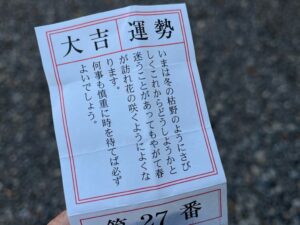 大吉
運勢
いまは冬の枯野のようにさび
しくこれからどうしようかと
迷うことがあってもやがて春
が訪れ花の咲くようによくな
ります。
何事も慎重に時を待てば必ず
よいでしょう。
第27番